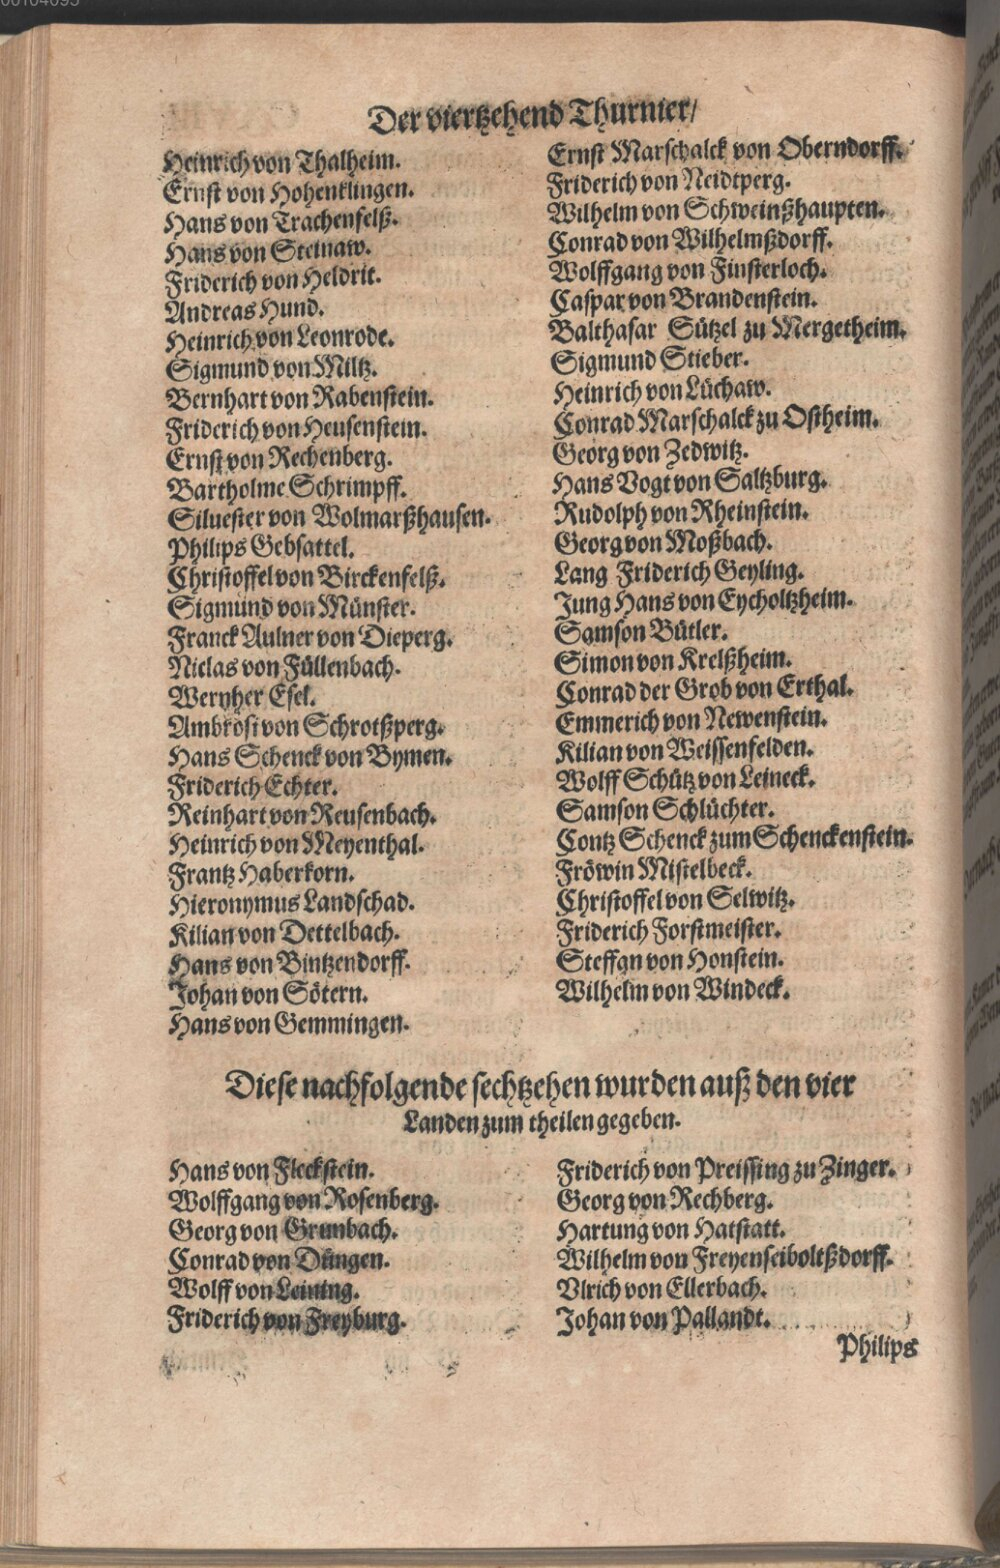 Der viertzehend Thurnier/
Heinrich von Thalheim.
Ernst von Hohenklingen.
Hans von Trachenfelß.
Hans von Steinaw.
Friderich von Heldrit.
Andreas Hund.
Heinrich von Leonrode.
Sigmund von Miltz.
Bernhart von Rabenstein.
Friderich von Heusenstein.
Ernst von Rechenberg.
Bartholme Schrimpff.
Siluester von Wolmarßhausen.
Philips Gebsattel.
Christoffel von Birckenfelß.
Sigmund von Münster.
Franck Aulner von Dieperg.
Niclas von Füllenbach.
Wernher Esel.
Ambrosi von Schrotßperg.
Hans Schenck von Bymen.
Friderich Echter.
Reinhart von Reusenbach.
Heinrich von Meyenthal.
Frantz Haberkorn.
Hieronymus Landschad.
Kilian von Dettelbach.
Hans von Bintzendorff.
Johan von Sötern.
Hans von Gemmingen.
Ernst Marschalck von Oberndorff.
Friderich von Neidtperg.
Wilhelm von Schweinßhaupten.
Conrad von Wilhelmßdorff.
Wolffgang von Finsterloch.
Caspar von Brandenstein.
Balthasar Sützel zu Mergetheim.
Sigmund Stieber.
Heinrich von Lüchaw.
Conrad Marschalck zu Ostheim.
Georg von Zedwitz.
Hans Vogt von Saltzburg.
Rudolph von Rheinstein.
Georg von Moßbach.
Lang Friderich Geyling.
Jung Hans von Eycholtzheim.
Samson Bütler.
Simon von Krelßheim.
Conrad der Grob von Erthal.
Emmerich von Newenstein.
Kilian von Weissenfelden.
Wolff Schütz von Leineck.
Samson Schlüchter.
Contz Schenck zum Schenckenstein.
Fröwin Mistelbeck.
Christoffel von Selwitz.
Friderich Forstmeister.
Steffan von Honstein.
Wilhelm von Windeck.
Diese nachfolgende sechtzehen wurden auß den vier
Landen zum theilen gegeben.
Hans von Fleckstein.
Wolffgang von Rosenberg.
Georg von Grunbach.
Conrad von Düngen.
Wolff von Leining.
Friderich von Freyburg.
Friderich von Preissing zu Zinger.
Georg von Rechberg.
Hartung von Hatstatt.
Wilhelm von Freyenseiboltßdorff.
Vlrich von Ellerbach.
Johan von Pallandt.
Philips